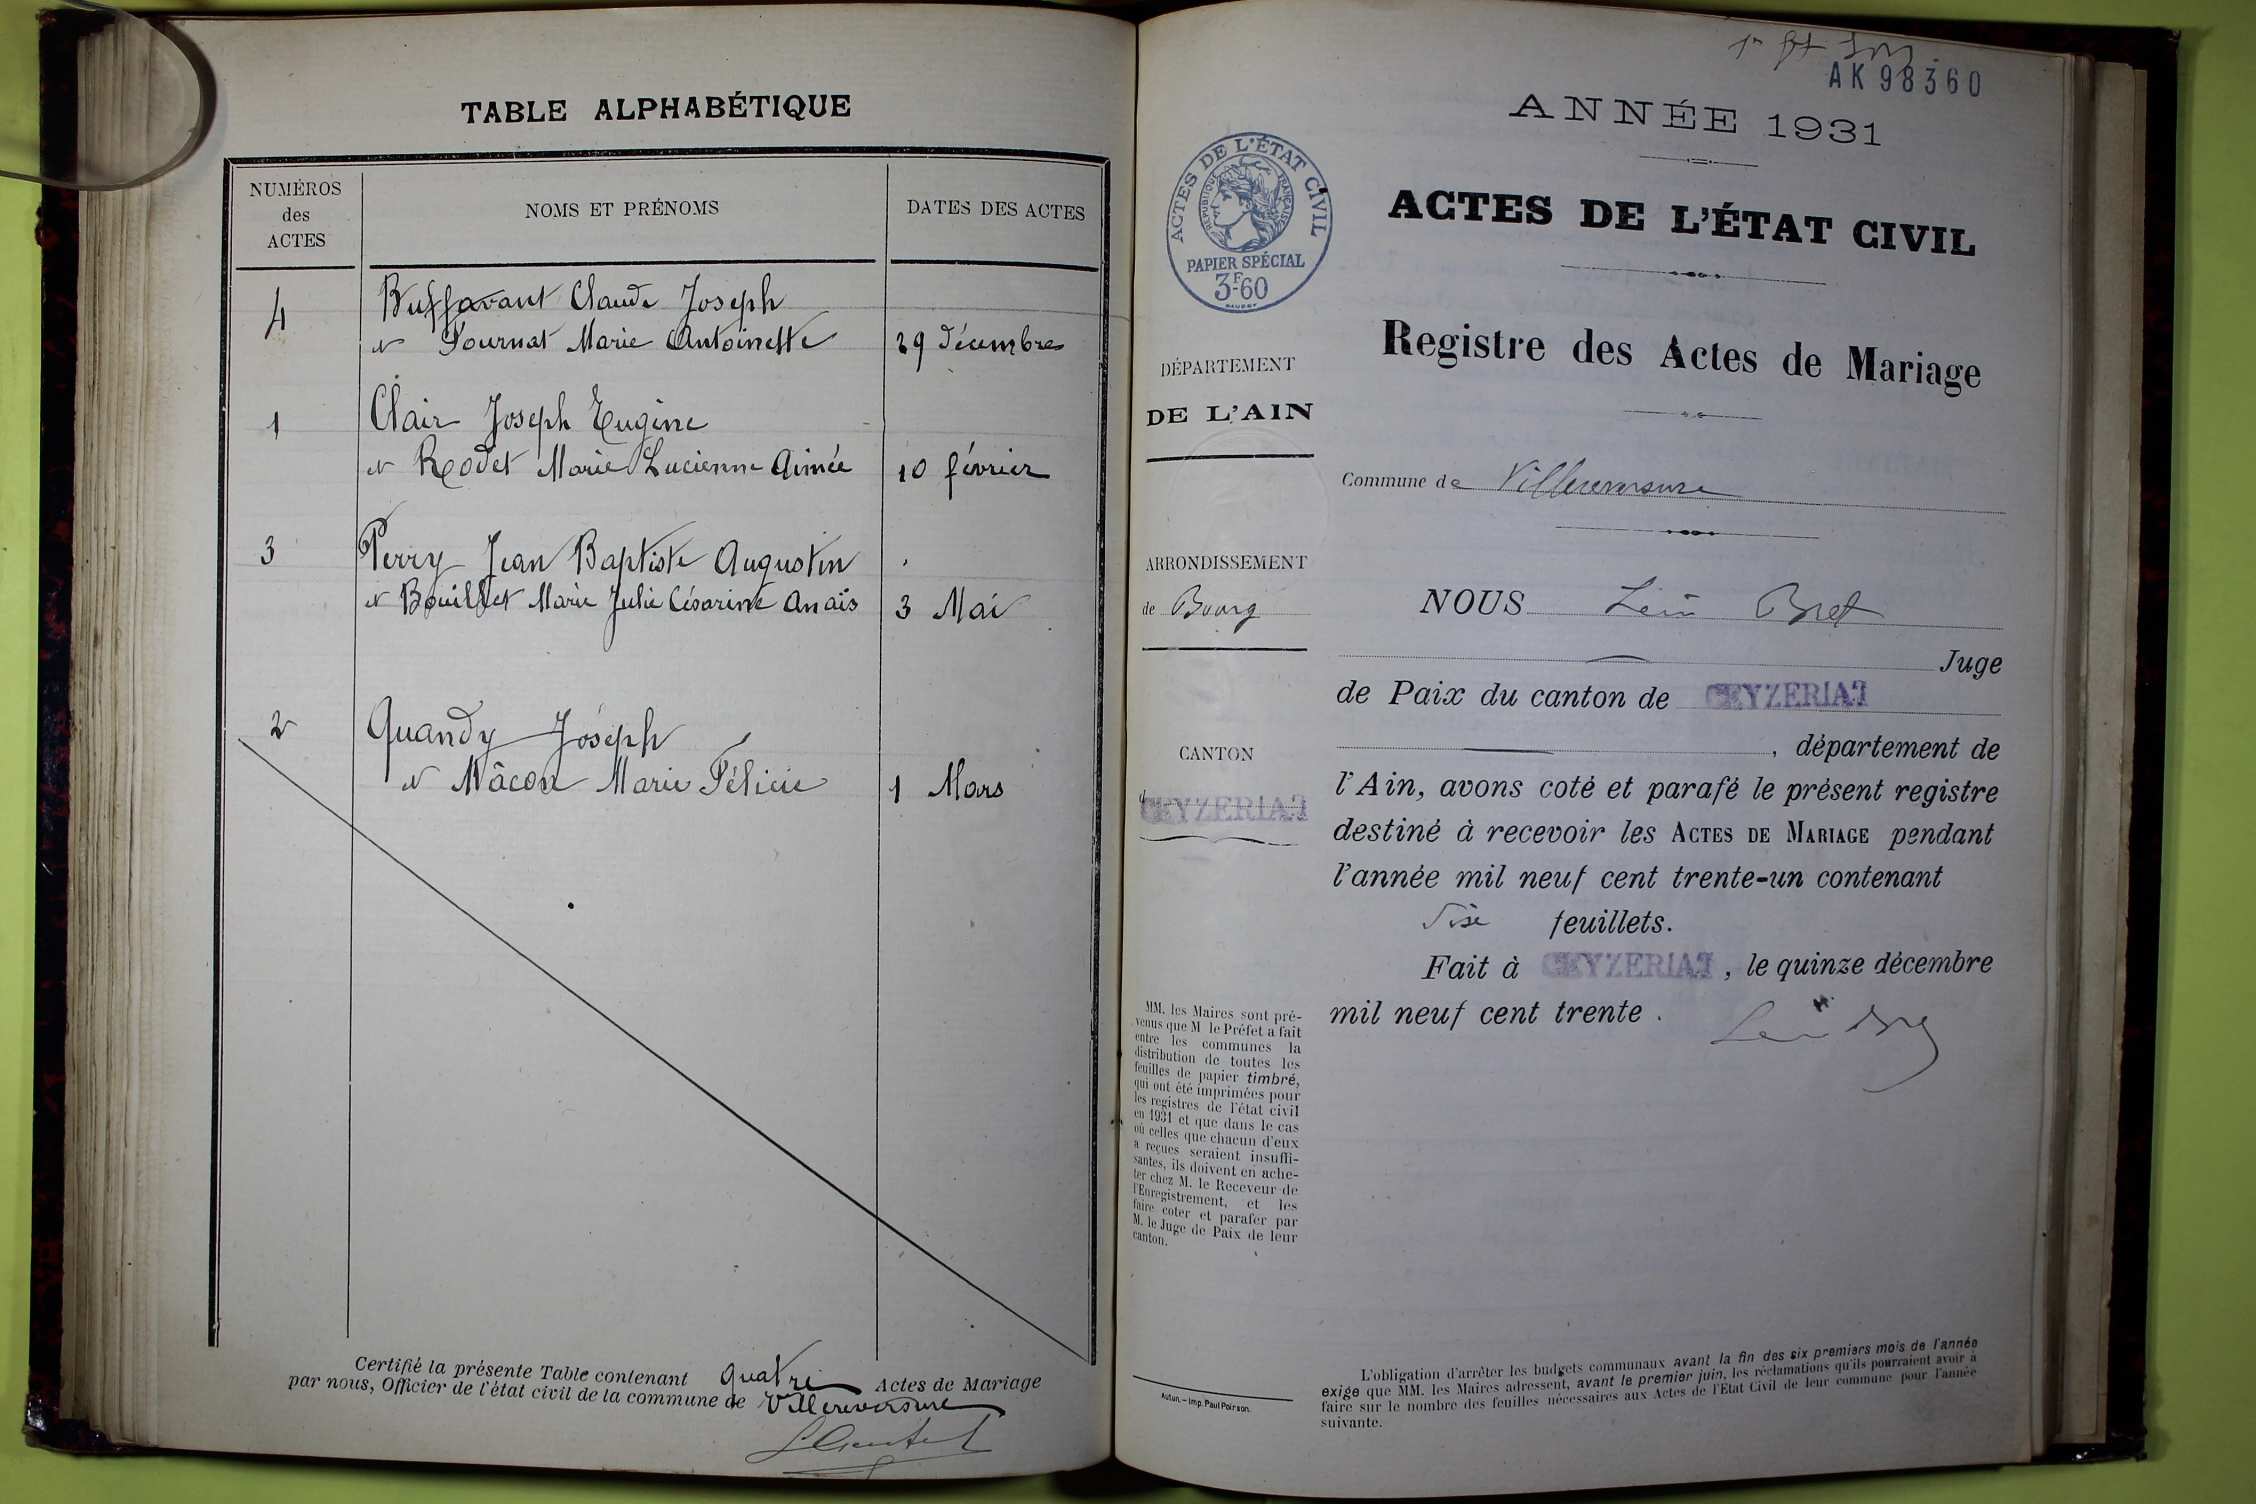 TABLE ALPHABÉTIQUE
NUMÉROS
des
ACTES
NOMS ET PRÉNOMS
DATES DES ACTES
4
Buffavant Claude Joseph
et Tournat Marie Antoinette
29 décembre
1
Clair Joseph Eugène
et Rodet Marie Lucienne Aimée
10 février
3
Perry Jean Baptiste Augustin
et Bouillet Marie Julie Césarine Anaïs
3 Mai
2
Quandy Joseph
et Mâcon Marie Félicie
1 Mars
Certifié la présente Table contenant Quatre Actes de Mariage
par nous, Officier de l'état civil de la commune de Villereversure
AK 98360
ANNÉE 1931
ACTES DE L'ÉTAT CIVIL
RÉPUBLIQUE FRANÇAISE
PAPIER SPÉCIAL
3F-60
ACTES DE L'ÉTAT CIVIL
Registre des Actes de Mariage
DÉPARTEMENT
DE L'AIN
Commune de Villereversure
ARRONDISSEMENT
de Bourg
NOUS Léon Bret
Juge
de Paix du canton de CEYZERIAT
CANTON
d CEYZERIAT
, département de
l'Ain, avons coté et parafé le présent registre
destiné à recevoir les ACTES DE MARIAGE pendant
l'année mil neuf cent trente-un contenant
Six feuillets.
Fait à CEYZERIAT, le quinze décembre
mil neuf cent trente.
MM. les Maires sont pré-
venus que M le Préfet a fait
entre les communes la
distribution de toutes les
feuilles de papier timbré,
qui ont été imprimées pour
les registres de l'état civil
en 1931 et que dans le cas
où celles que chacun d'eux
a reçues seraient insuffi-
santes, ils doivent en ache-
ter chez M. le Receveur de
l'Enregistrement, et les
faire coter et parafer par
M. le Juge de Paix de leur
canton.
Autun. — Imp. Paul Poirson.
L'obligation d'arrêter les budgets communaux avant la fin des six premiers mois de l'année
exige que MM. les Maires adressent, avant le premier juin, les réclamations qu'ils pourraient avoir à
faire sur le nombre des feuilles nécessaires aux Actes de l'État Civil de leur commune pour l'année
suivante.